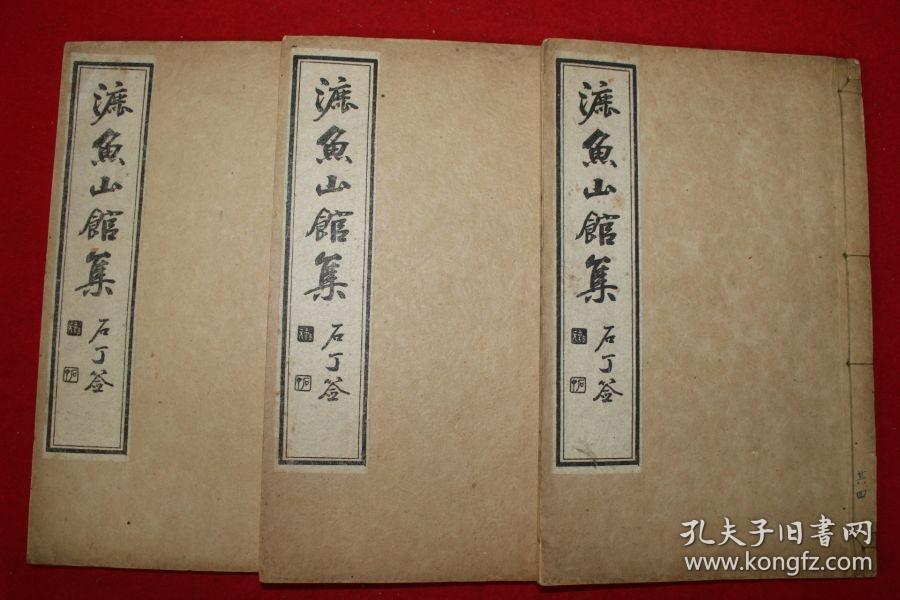 漉魚山館集
石丁簽
漉魚山館集
石丁簽
漉魚山館集
石丁簽
其四
孔夫子旧書网
www.kongfz.com